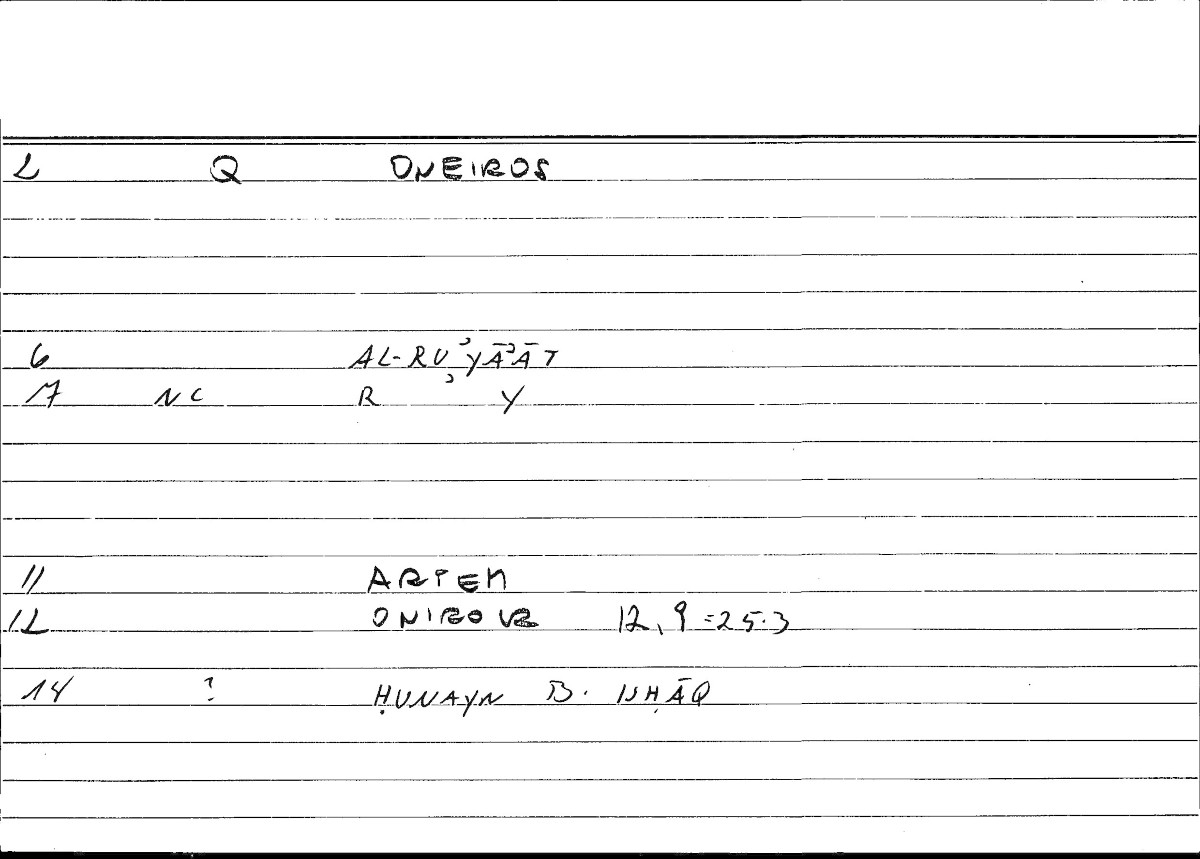 2 Q ONEIROS
6 AL-RUʾYĀʾĀT
7 NC R ʾ Y
11 ARTEM
12 ONIROUR 12, 9 =25.3
14 ? ḤUNAYN B. ISḤĀQ